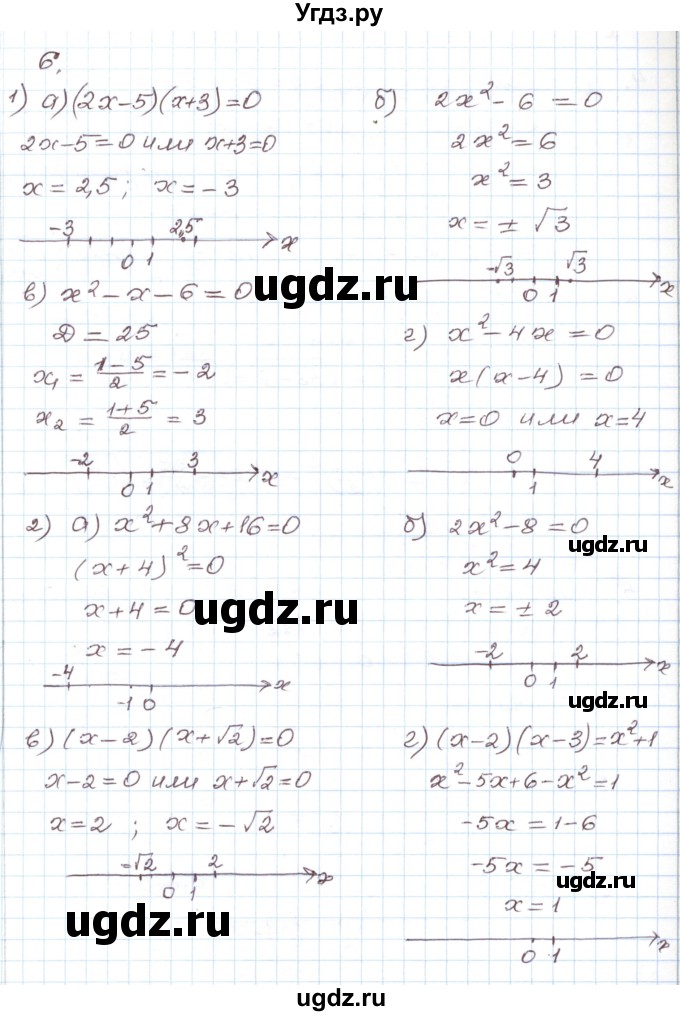 Угдз.ру
6.
1) а) (2x-5)(x+3)=0
2x-5=0 или x+3=0
x = 2,5 ; x = -3
-3 2,5
0 1 x
б) 2x² - 6 = 0
2x² = 6
x² = 3
x = ± √3
-√3 √3
0 1 x
в) x² - x - 6 = 0
D = 25
x₁ = (1-5)/2 = -2
x₂ = (1+5)/2 = 3
-2 3
0 1 x
ugdz.ru
г) x² - 4x = 0
x(x-4) = 0
x=0 или x=4
0 4
1 x
2) а) x² + 8x + 16 = 0
(x+4)² = 0
x+4 = 0
x = -4
-4
-1 0 x
ugdz.ru
б) 2x² - 8 = 0
ugdz.ru
x² = 4
x = ± 2
-2 2
0 1 x
ugdz.ru
в) (x-2)(x+√2)=0
x-2=0 или x+√2=0
x=2 ; x = -√2
-√2 2
0 1 x
ugdz.ru
г) (x-2)(x-3)=x²+1
x²-5x+6-x²=1
-5x = 1-6
-5x = -5
ugdz.ru
x = 1
0 1 x
ugdz.ru